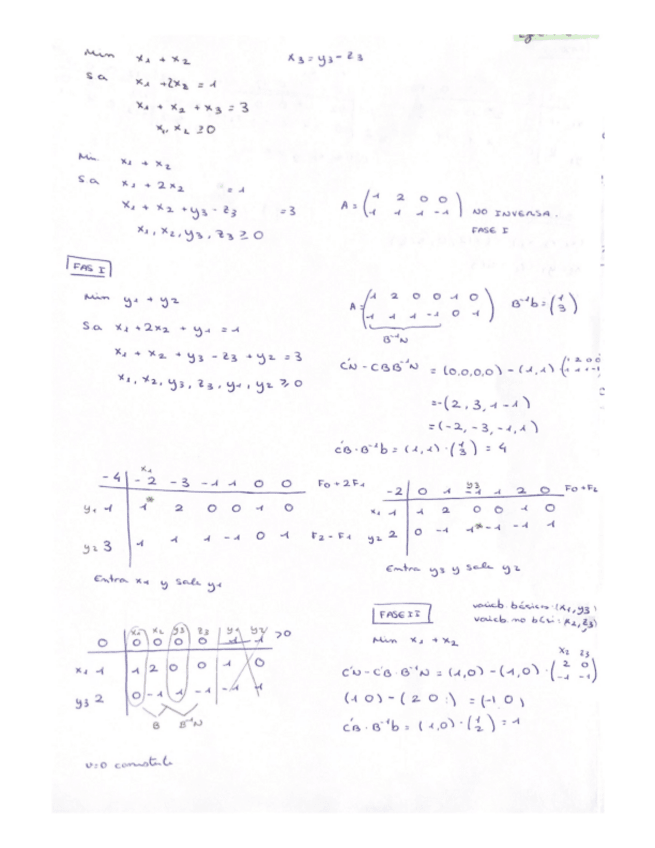 Min x₁ + x₂
x₃ = y₃ - z₃
s a x₁ + 2x₂ = 1
x₁ + x₂ + x₃ = 3
x₁, x₂ ≥ 0
Min x₁ + x₂
s a x₁ + 2x₂ = 1
x₁ + x₂ + y₃ - z₃ = 3
x₁, x₂, y₃, z₃ ≥ 0
A = (1 2 0 0
1 1 1 -1)
NO INVERSA.
FASE I
FAS I
Min y₁ + y₂
Sa x₁ + 2x₂ + y₁ = 1
x₁ + x₂ + y₃ - z₃ + y₂ = 3
x₁, x₂, y₃, z₃, y₁, y₂ ≥ 0
A = (1 2 0 0 1 0
1 1 1 -1 0 1)
B⁻¹N
B⁻¹b = (1
3)
c'N - CBB⁻¹N = (0,0,0,0) - (1,1) (1 2 0 0
1 1 1 -1
= -(2, 3, 1 -1)
= (-2, -3, -1, 1)
c'B · B⁻¹b = (1,1) · (1
3) = 4
x₁
-4 -2 -3 -1 1 0 0 F0 + 2F1
y₁ 1 1* 2 0 0 1 0
y₂ 3 1 1 1 -1 0 1 F2 - F1
Entra x₁ y sale y₁
y₃
-2 0 1 -1 1 2 0 F0+F2
x₁ 1 1 2 0 0 1 0
y₂ 2 0 -1 1* -1 -1 1
Entra y₃ y sale y₂
x₁ x₂ y₃ z₃ y₁ y₂ >0
0 0 0 0 0 1 1
x₁ 1 1 2 0 0 1 0
y₃ 2 0 -1 1 -1 -1 1
B B⁻¹N
FASE II
variab. básicas: (x₁, y₃)
variab no bási: x₂, z₃)
Min x₁ + x₂
x₂ z₃
c'N - c'B · B⁻¹N = (1,0) - (1,0) · (2 0
-1 -1)
(1 0) - (2 0 ) = (-1 0)
c'B · B⁻¹b = (1,0) · (1
2) = 1